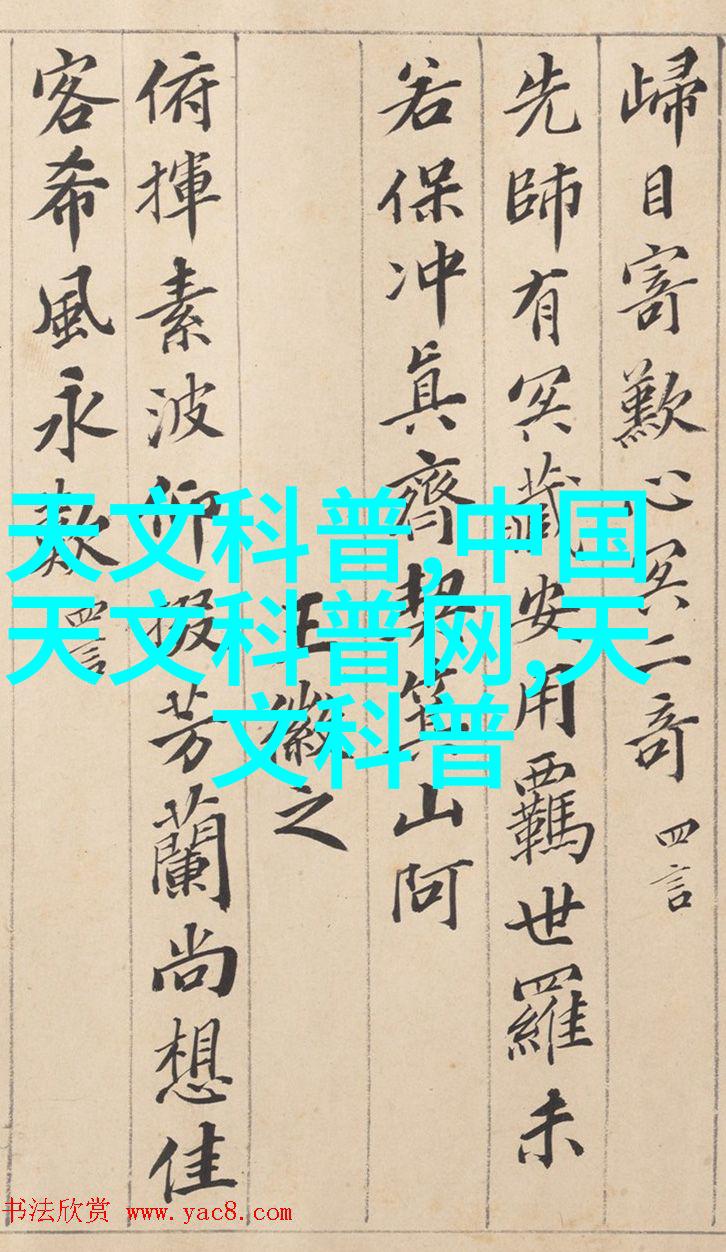 歸目寄歎心冥二奇 四言
先師有冥藏安用羈世羅未
若保冲真齊契箕山阿
王徽之
俯揮素波仰掇芳蘭尚想佳
客希風永歎 四言
天文科普,中国
天文科普网,天
文科普
书法欣赏 www.yac8.com